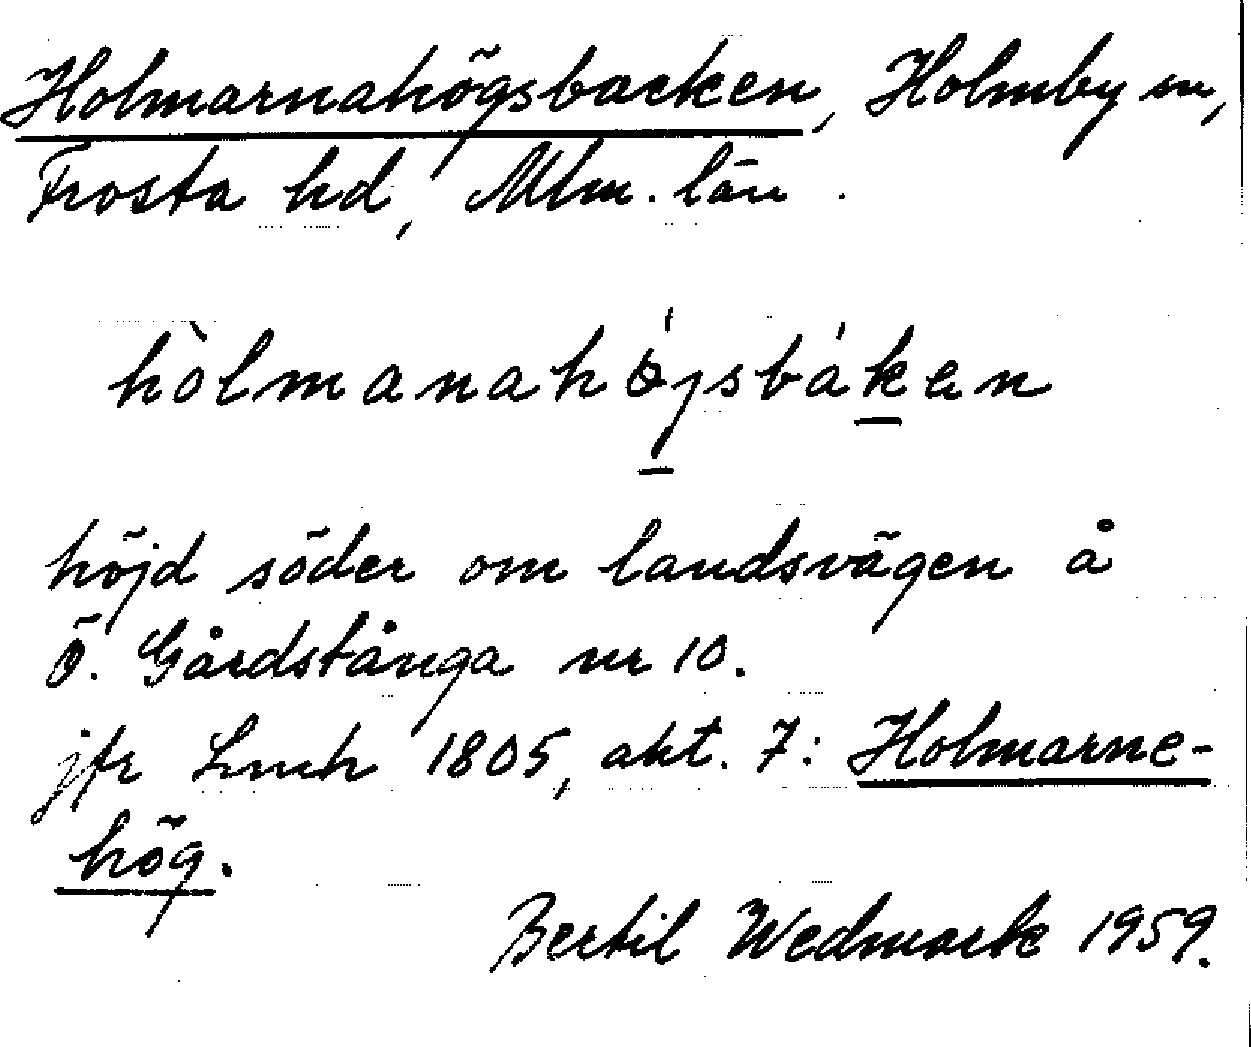 Holmarnahögsbacken, Holmby sn,
Frosta hd, Mlm. län.
hòlmanahǿjsbáken
höjd söder om landsvägen å
Ö. Gårdstånga nr 10.
jfr Lmh 1805, akt. 7: Holmarne-
hög.
Bertil Wedmark 1959.